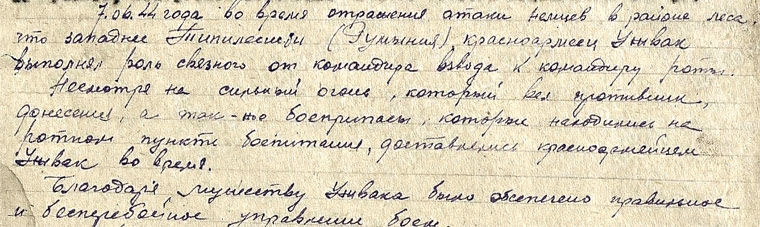 7.06.44 года во время отражения атаки немцев в районе леса,
что западнее (Румыния) красноармеец Унвак
выполнял роль связного от командира взвода к командиру роты.
Несмотря на сильный огонь, который вел противник,
донесения, а так-же боеприпасы, которые находились на
ротном пункте боепитания, доставлялись красноармейцем
Унвак во время.
Благодаря мужеству Унвака было обеспечено правильное
и бесперебойное управление боем.